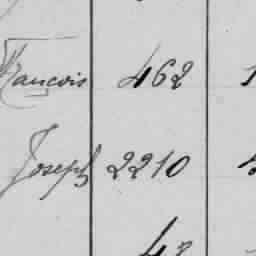 François 462
Joseph 2210